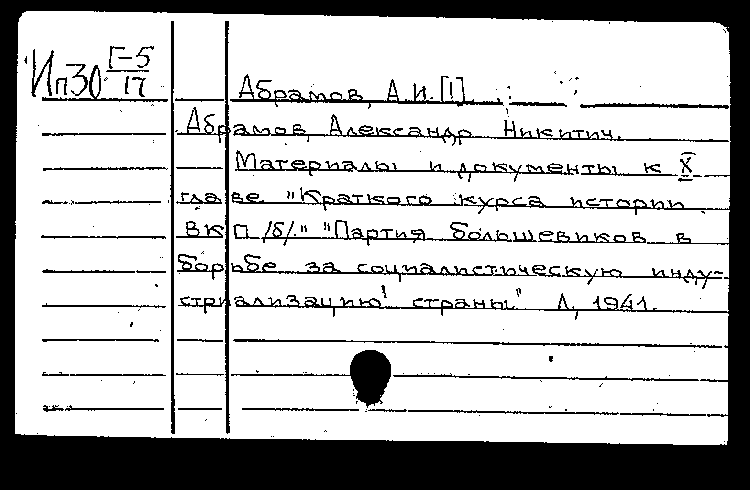 Ип30 Г-5/17
Абрамов, А.И. [1].
Абрамов, Александр Никитич.
Материалы и документы к X
главе "Краткого курса истории
ВКП/б/." "Партия большевиков в
борьбе за социалистическую инду-
стриализацию страны" Л, 1941.